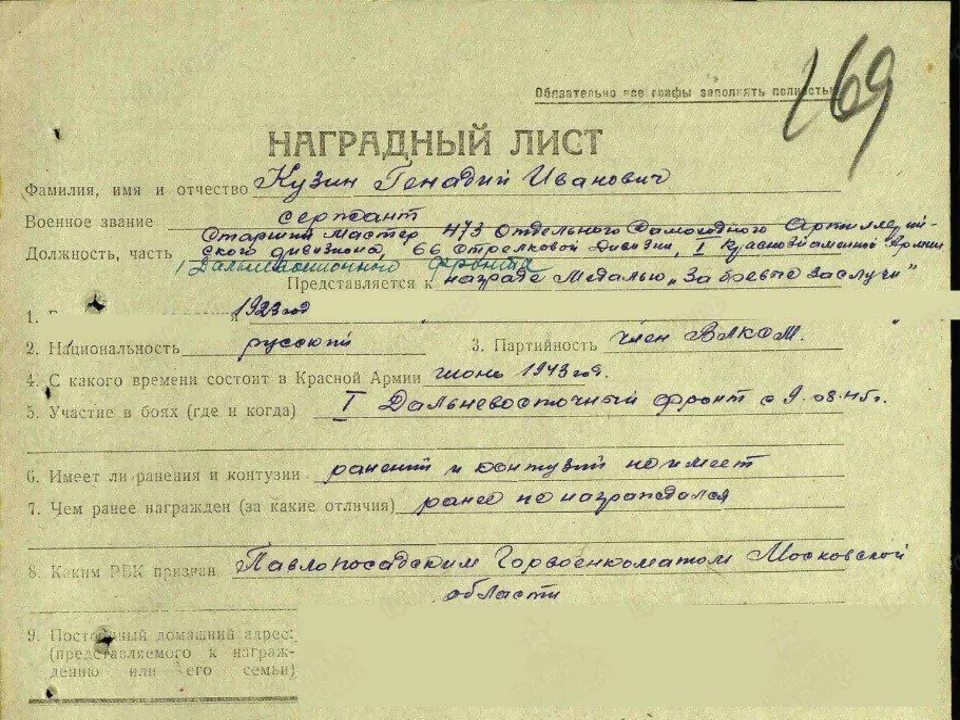 169
Обязательно все графы заполнять полностью
НАГРАДНЫЙ ЛИСТ
Фамилия, имя и отчество Кузин Генадий Иванович
Военное звание сержант
Старший Мастер 473 отдельного Самоходного Артиллерий-
Должность, часть ского дивизиона, 66 Стрелковой Дивизии, I Краснознаменной Армии
1 Дальневосточного фронта
Представляется к награде Медалью „За боевые заслуги"
1. 1923 год
2. Национальность русский 3. Партийность член ВЛКСМ.
4. С какого времени состоит в Красной Армии июнь 1943 год.
5. Участие в боях (где и когда) I Дальневосточный фронт с 9.08.45г.
6. Имеет ли ранения и контузии ранений и контузий не имеет
7. Чем ранее награжден (за какие отличия) ранее не награждался
8. Каким РВК призван Павлопосадским Горвоенкоматом Московской
области
9. Постоянный домашний адрес:
(представляемого к награж-
дению или его семьи)